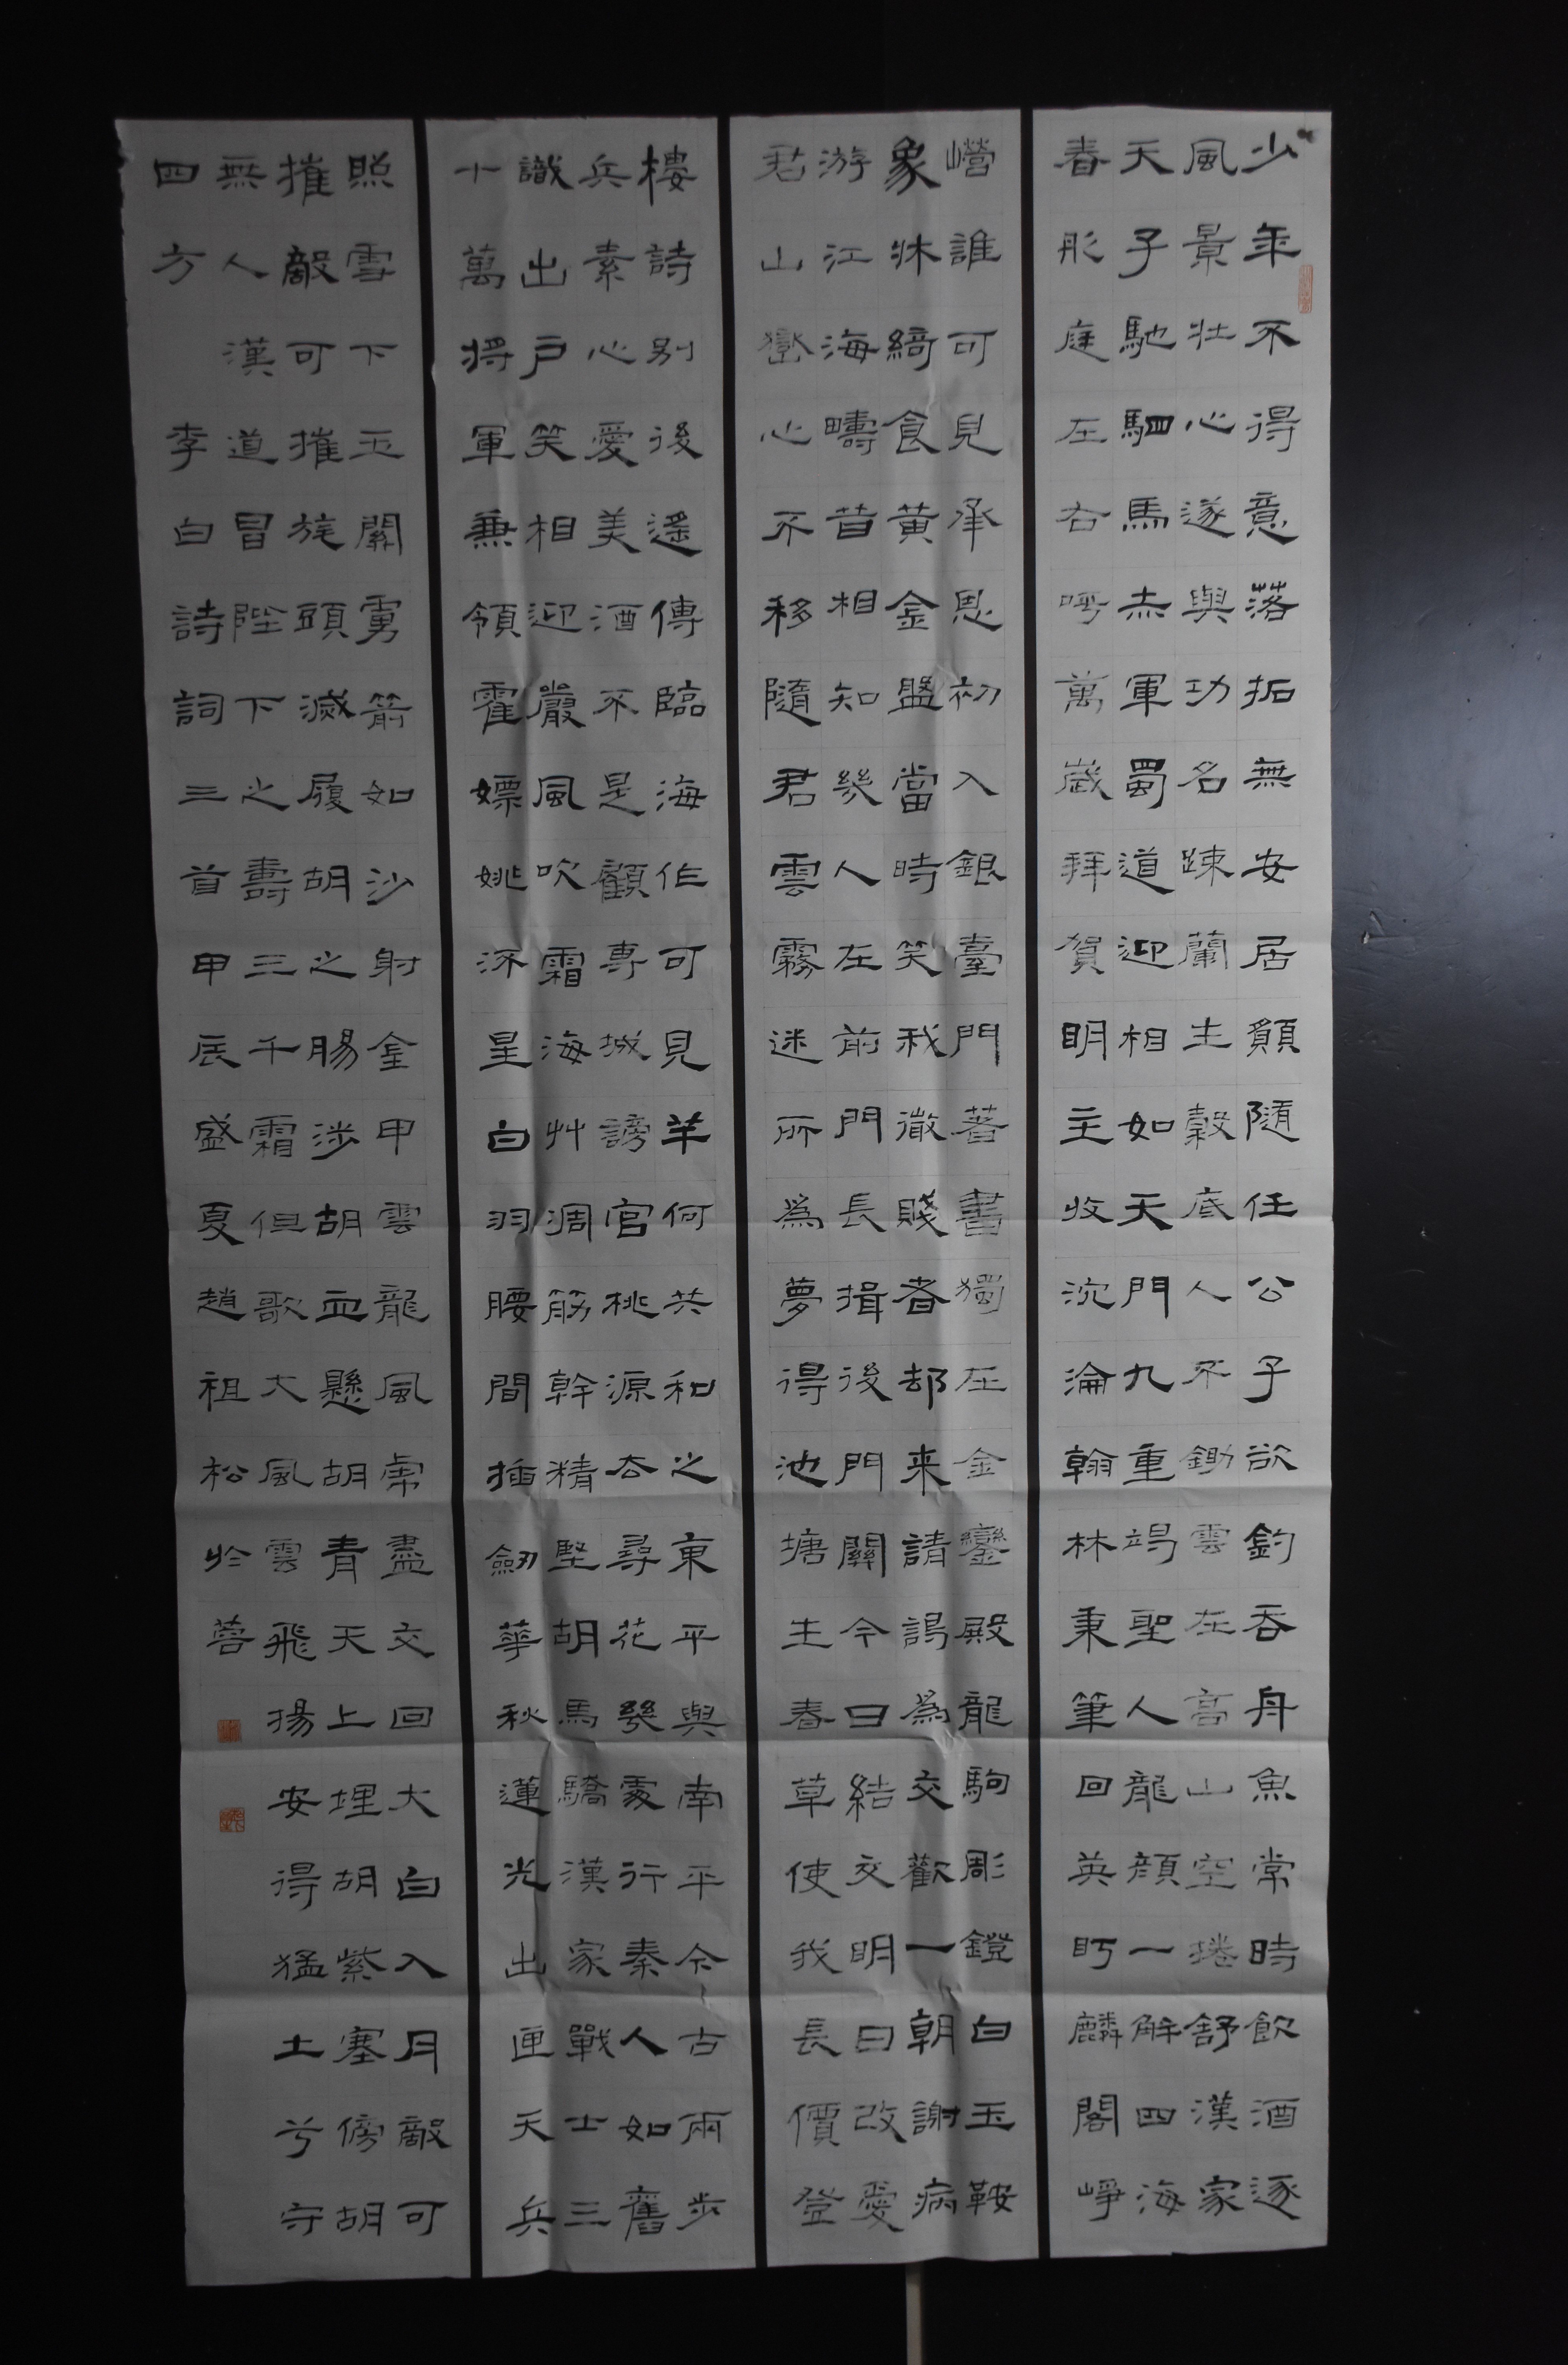 少年不得意落拓無安居願隨任公子欲釣吞舟魚常時飲酒逐
風景壯心遂與功名疎蘭生穀底人不鋤雲在高山空捲舒漢家
天子馳駟馬赤軍蜀道迎相如天門九重謁聖人龍顏一解四海
春彤庭左右呼萬歲拜賀明主收沈淪翰林秉筆回英眄麟閣崢
巆誰可見承恩初入銀臺門著書獨在金鑾殿龍駒彫鐙白玉鞍
象牀綺食黃金盤當時笑我微賤者却来請謁為交歡一朝謝病
游江海疇昔相知幾人在前門長揖後門關今日結交明日改愛
君山巒心不移隨君雲霧迷所為夢得池塘生春草使我長價登
樓詩別後遙傳臨海作可見羊何共和之東平與南平今古兩步
兵素心愛美酒不是顧專城謫官桃源去尋花幾處行秦人如舊
識出戶笑相迎嚴風吹霜海艸凋筋幹精堅胡馬驕漢家戰士三
十萬將軍兼領霍嫖姚流星白羽腰間插劍華秋蓮光出匣天兵
照雪下玉關虜箭如沙射金甲雲龍風虎盡交回大白入月敵可
摧敵可摧旄頭滅履胡之腸涉胡血懸胡青天上埋胡紫塞傍胡
無人漢道昌陛下之壽三千霜但歌大風雲飛揚安得猛士兮守
四方 李白詩詞三首甲辰盛夏趙祖松於蓉